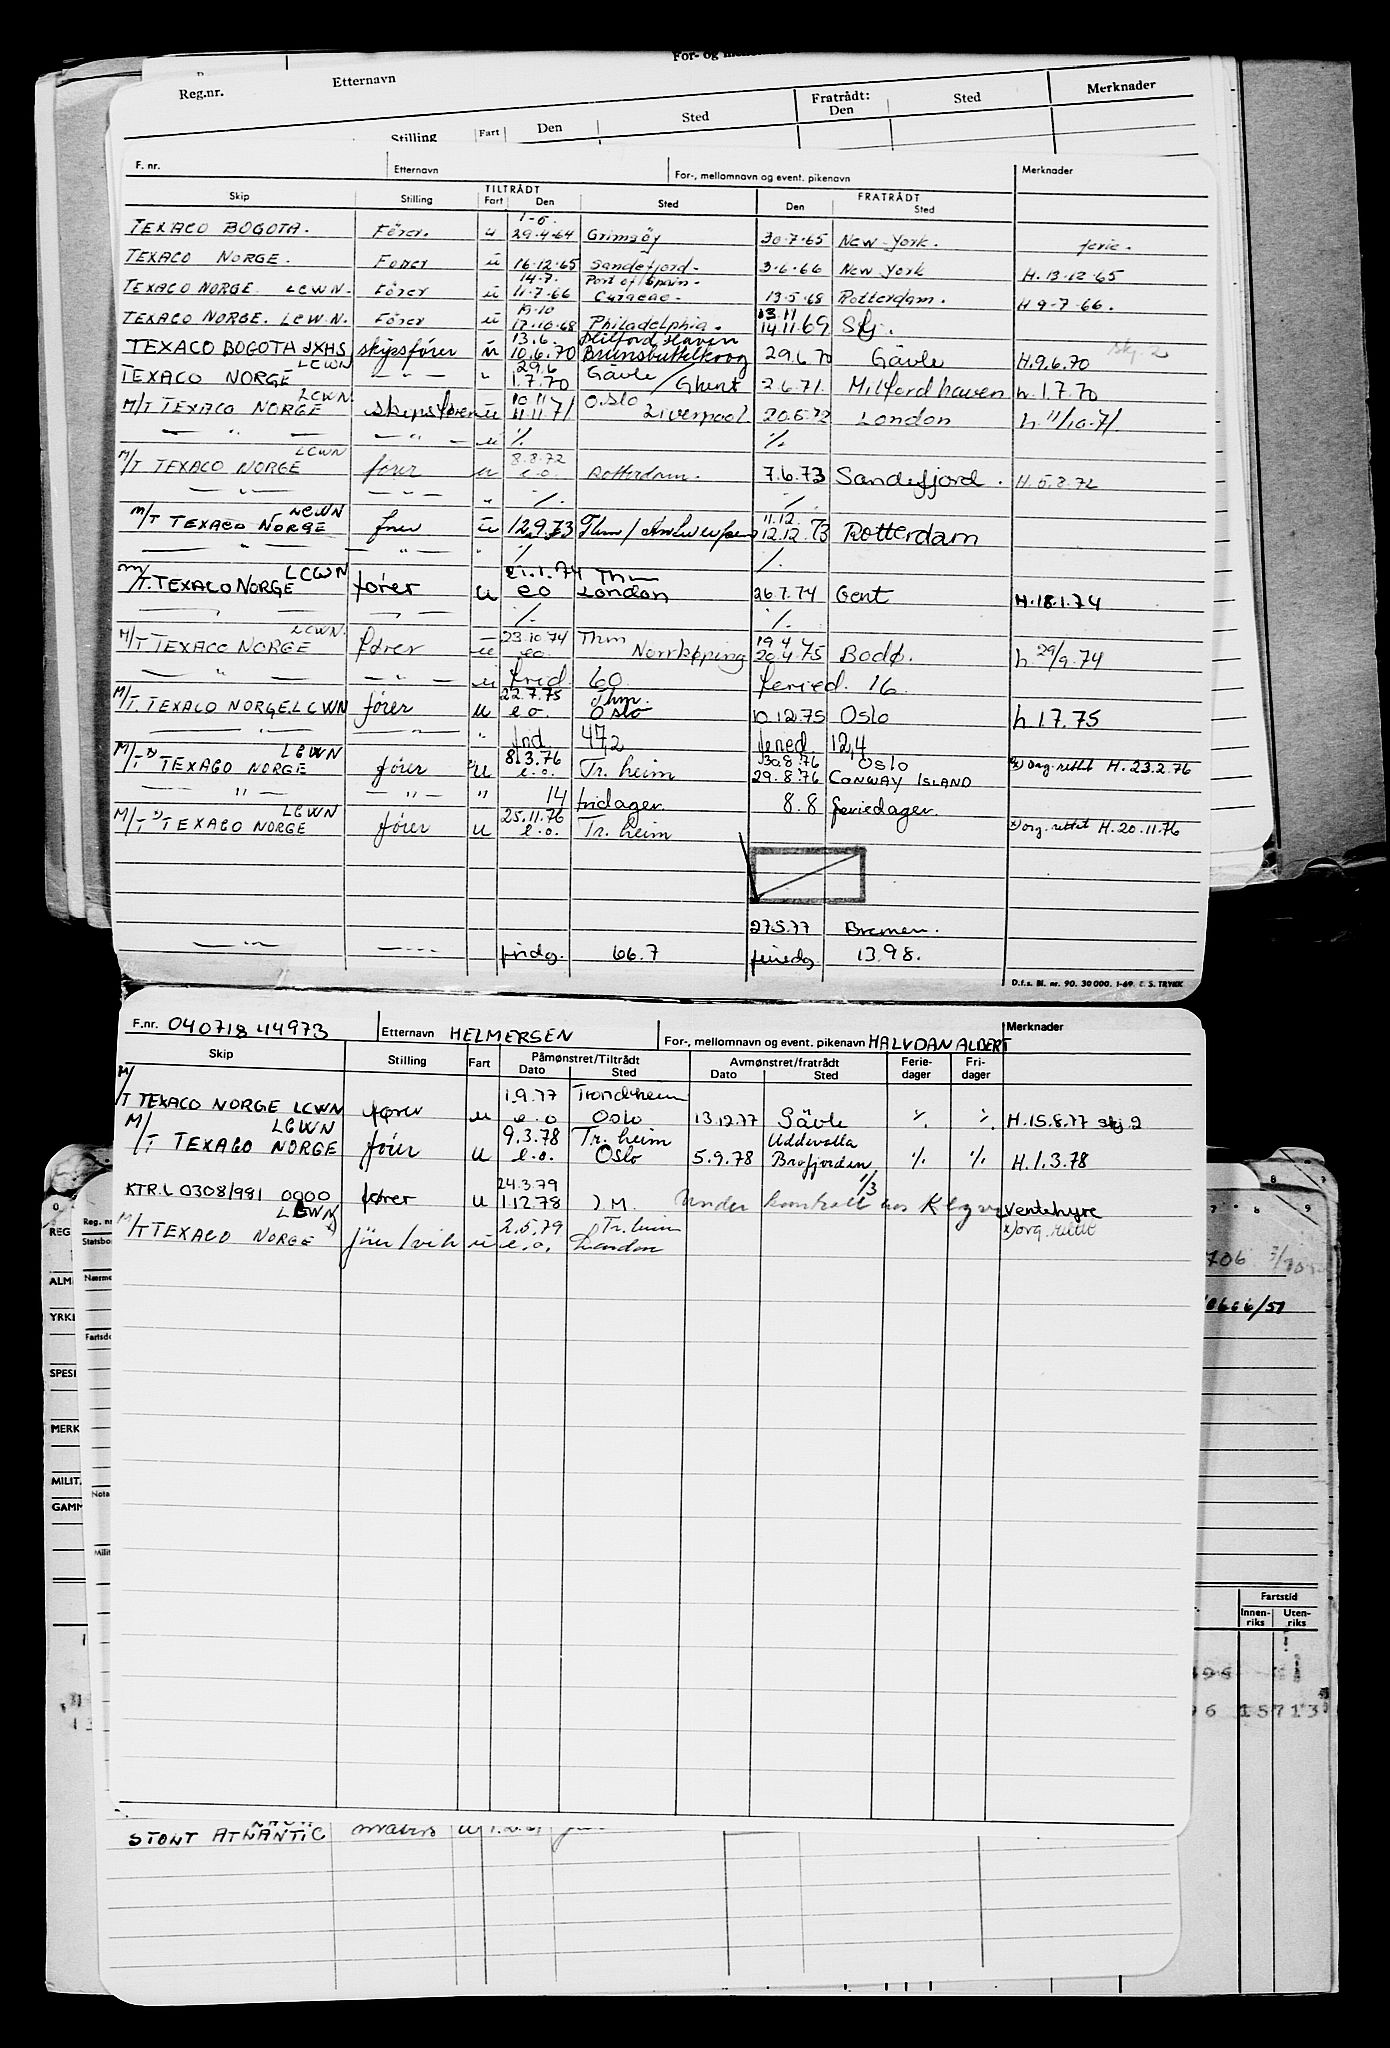 For- og
Reg.nr. Etternavn
Stilling Fart Den Sted Fratrådt: Den Sted Merknader
F. nr. Etternavn For-, mellomnavn og event. pikenavn Merknader
TILTRÅDT FRATRÅDT
Skip Stilling Fart Den Sted Den Sted
TEXACO BOGOTA. Fører. u 29.4.64 Grimsøy 30.7.65 New-York. ferie.
TEXACO NORGE. Fører u 16.12.65 Sandefjord. 3.6.66 New York H.13.12.65
14.7. Port of Spain.
TEXACO NORGE LCWN. Fører u 11.7.66 Curacao. 13.5.68 Rotterdam. H 9-7-66.
19.10 13.11
TEXACO NORGE. LCWN. Fører u 17.10.68 Philadelphia. 14.11.69 Skj. skj. 2
13.6. Milford Haven
TEXACO BOGOTA JXHS skipsfører u 10.6.70 Brunsbuttelkoog 29.6.70 Gävle H.9.6.70
LCWN 29.6 Gävle
TEXACO NORGE — " — " 1.7.70 / Ghent 2.6.71. Milfordhaven h.1.7.70
LCWN 10.11 Oslo
M/T TEXACO NORGE skipsfører u 11.11.71 Liverpool. 20.6.72 London h. 11/10-71
— " — — " — u ./. ./.
LCWN 8.8.72
M/T TEXACO NORGE fører u e.o. Rotterdam. 7.6.73 Sandefjord. H.5.8.72
— " — — " — " ./. ./.
LCWN 11.12.
M/T TEXACO NORGE fører u 12.9.73 Thm / 12.12.73 Rotterdam
— " — — " — " ./. ./.
LCWN 21.1.74 Thm
M/T. TEXACO NORGE fører u eo London 26.7.74 Gent H.18.1.74
— " — — " — ./. ./.
LCWN. 23.10.74 Thm 19.4
M/T TEXACO NORGE fører u eo. Norrköping 20.4.75 Bodø. h 29/9.74
— " — — " — u frid 60 feried. 16
22.7.75 Thm.
M/T. TEXACO NORGE LCWN fører u e.o. Oslo 10.12.75 Oslo h 17.75
— " — — " — " frd 47,2 feried 12,4
LCWN 8.3.76 30.8.76 Oslo
M/T x) TEXACO NORGE fører u e.o. Tr.heim 29.8.76 CONWAY ISLAND x) org. rettet H. 23.2.76
— " — — " — " 14 fridager 8.8 feriedager
LCWN 25.11.76
M/T x) TEXACO NORGE fører u e.o. Tr.heim x) org. rettet H. 20.11.76
27.5.77 Bremen.
— " — — " — fridg. 66.7 feriedg 13.98.
D.f.s. Bl. nr. 90. 30 000. 1-69. E. S. TRYKK
F.nr. 040718 44973 Etternavn HELMERSEN For-, mellomnavn og event. pikenavn HALVDAN ALBERT Merknader
Skip Stilling Fart Påmønstret/Tiltrådt Avmønstret/fratrådt Ferie- Fri-
Dato Sted Dato Sted dager dager
M/ 1.9.77 Trondheim
T TEXACO NORGE LCWN fører u e.o Oslo 13.12.77 Gävle ./. ./. H.15.8.77 skj.2
M/ LCWN 9.3.78 Tr.heim Uddevalla
T TEXACO NORGE fører u e.o. Oslo 5.9.78 Brofjorden ./. ./. H.1.3.78
24.3.79 1/3
KTR.L 0308/981 0000 fører u 1.12.78 J.M. Under kontroll Ventehyre
M/ LCWN x) 2.5.79 Tr.heim x) org.
T TEXACO NORGE fører/vik u e.o. London
REG
Reg. n
Statsbo
ALM
Nærme
YRK
Fartsdo
SPESI
MERK
MILIT
Nota
GAMM
Milit
706
0666/51
Fartstid
Innen- Uten-
riks riks
96 15713
STOLT ATLANTIC matros u